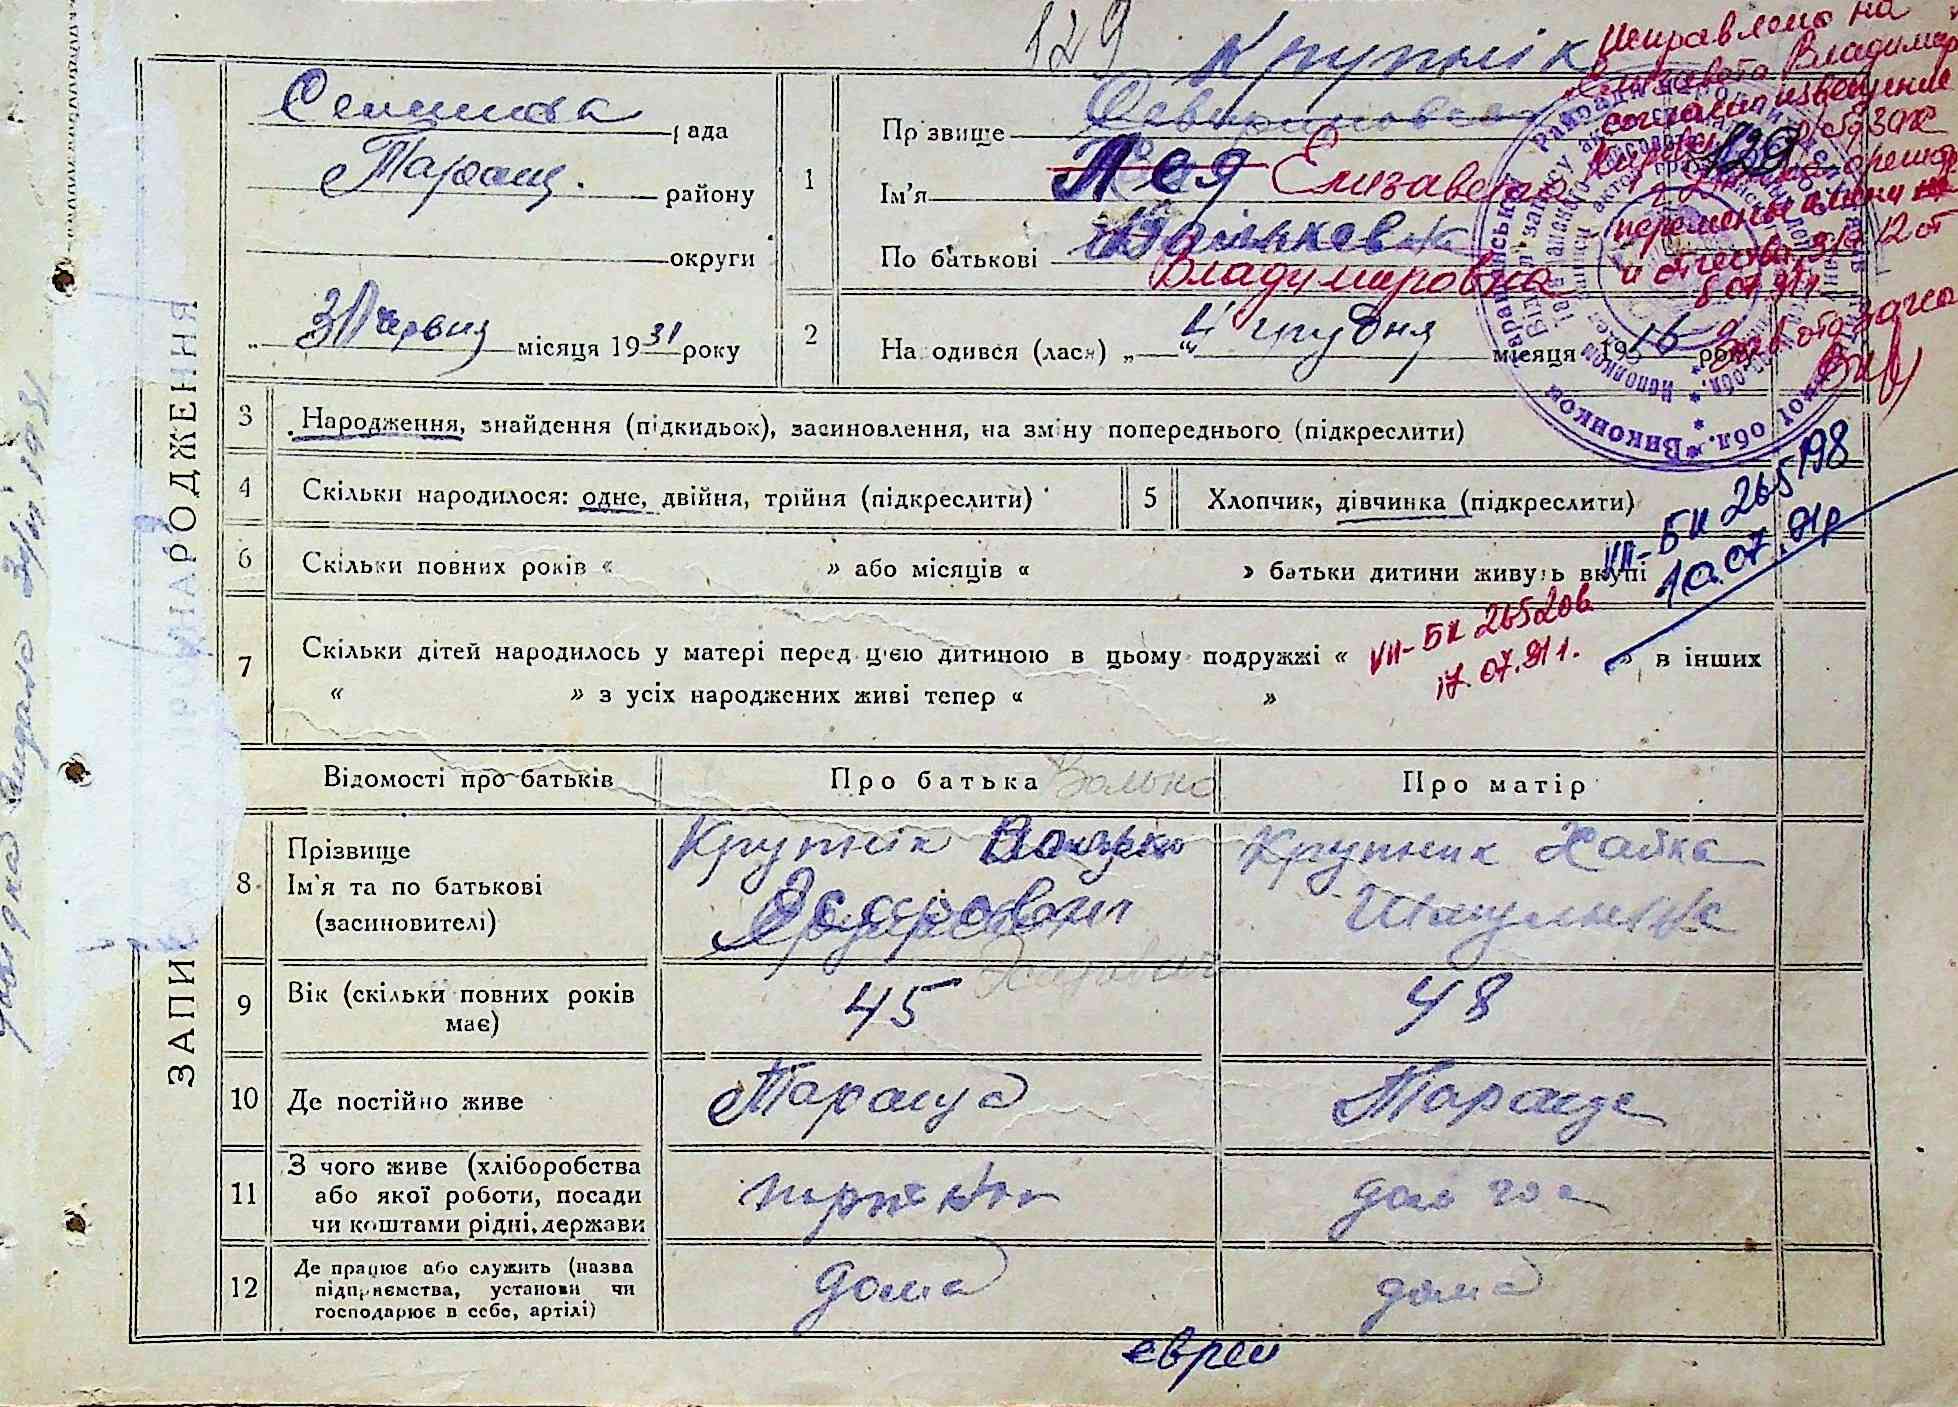 129
Крупнік
Исправлены на
Елизавета Владимир
согласно извещение
129
перемены имени
и отчества 3/9 12 от
8.07.91г.
Селищна рада
Таращ. району
округи
„31 червня місяця 1931 року
1
Прізвище
Ім'я Лея Елизавета
По батькові Волькович
Владимировна
2
Народився (лася) „4“ грудня місяця 1916 року
ЗАПИ НАРОДЖЕННЯ
3 Народження, знайдення (підкидьок), засиновлення, на зміну попереднього (підкреслити)
4 Скільки народилося: одне, двійня, трійня (підкреслити)
5 Хлопчик, дівчинка (підкреслити)
VII-БК 265198
10.07.91р
6 Скільки повних років « » або місяців « » батьки дитини живуть вкупі
7 Скільки дітей народилось у матері перед цією дитиною в цьому подружжі « » в інших
« » з усіх народжених живі тепер « »
VII-БК 265206
17.07.91г.
Відомості про батьків
Про батька Волько
Про матір
8 Прізвище
Ім'я та по батькові
(засиновителі)
Крупнік Волько
Крупник Хайка
Шмульевн
9 Вік (скільки повних років
має)
45
48
10 Де постійно живе
Тараща
Тараще
11 З чого живе (хліборобства
або якої роботи, посади
чи коштами рідні, держави
дом гос
12 Де працює або служить (назва
підприємства, установи чи
господарює в себе, артілі)
дома
дома
еврей